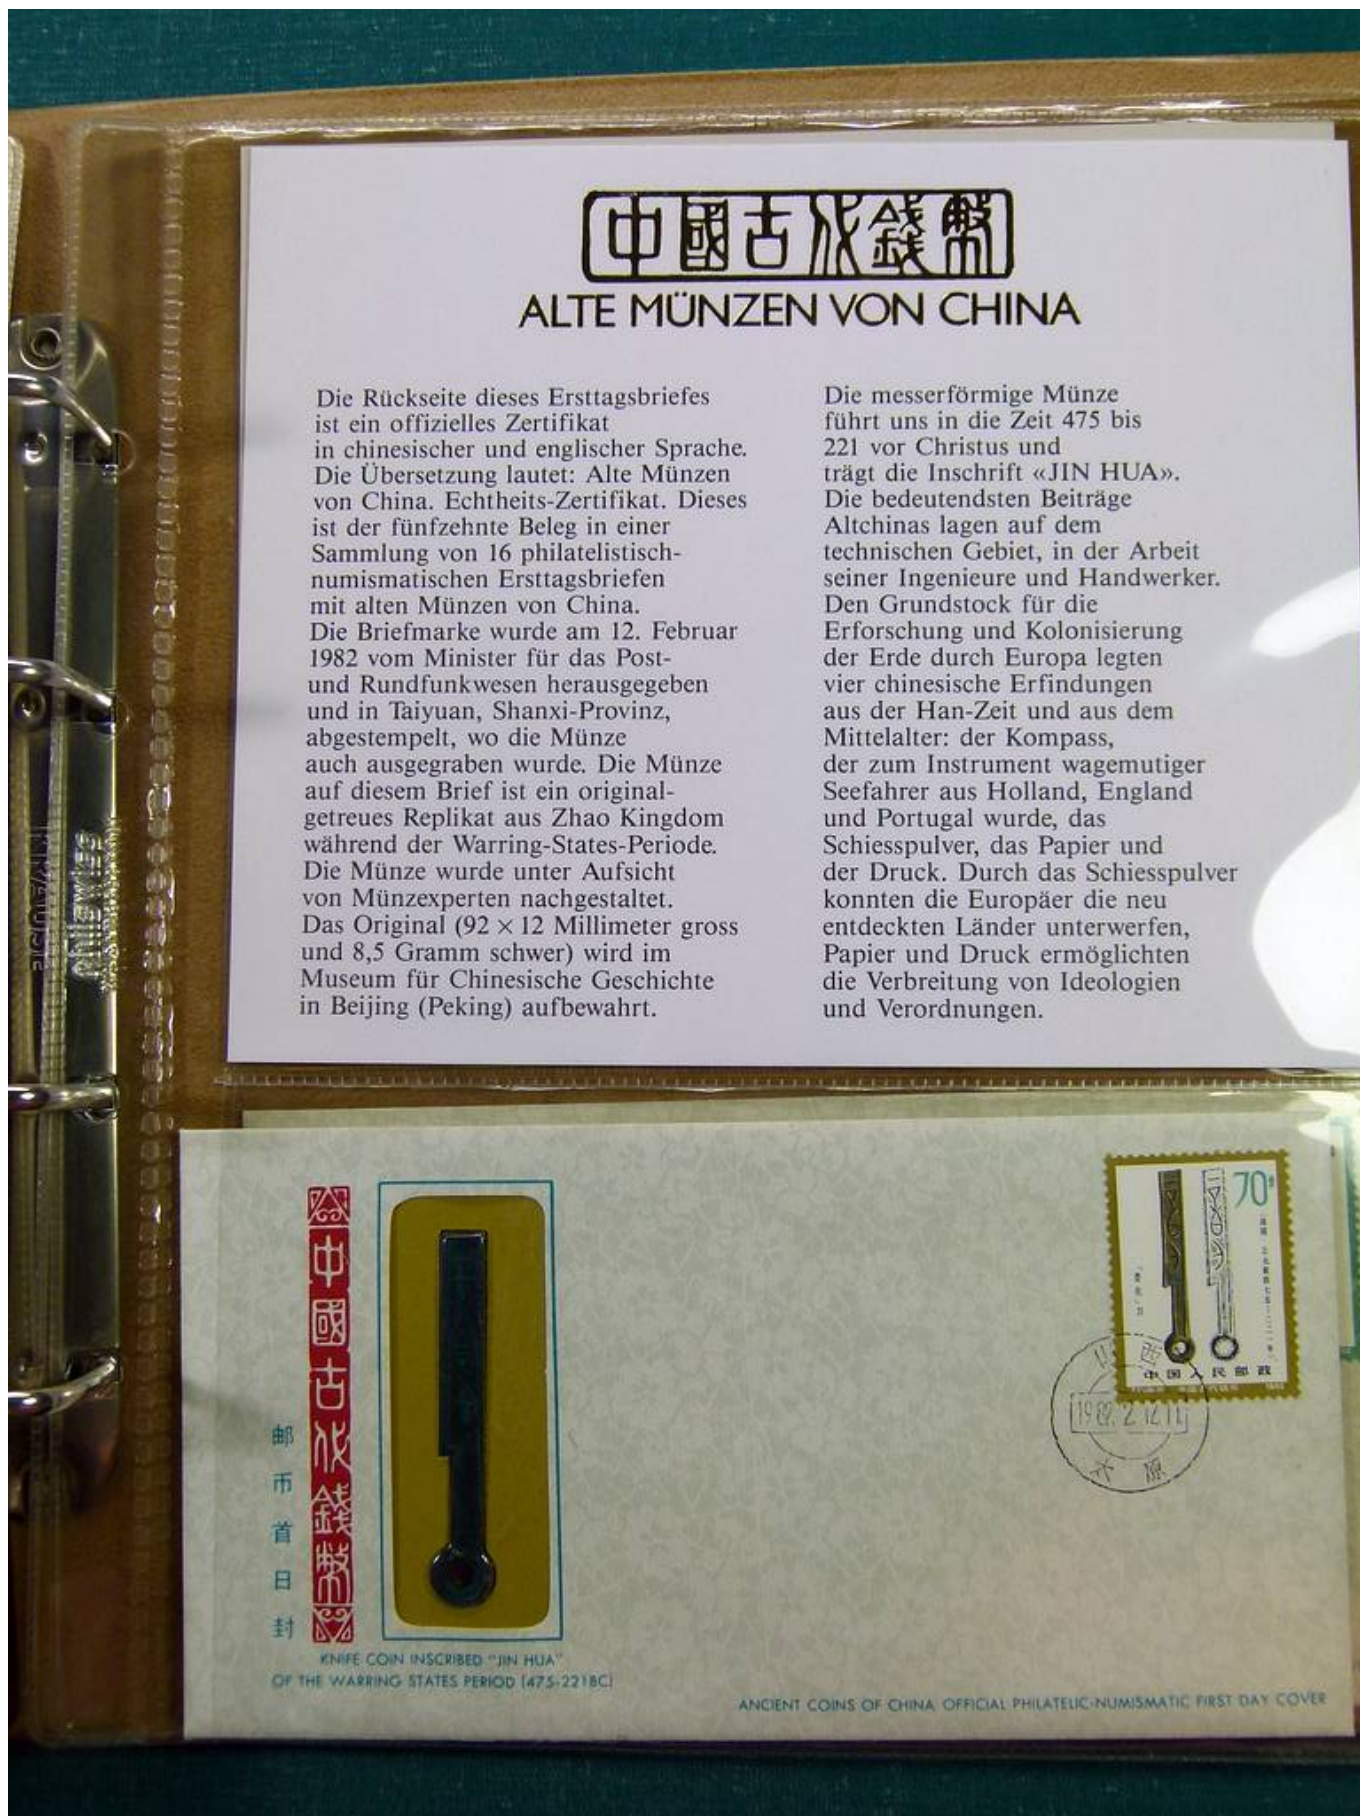 中國古代錢幣
ALTE MÜNZEN VON CHINA
Die Rückseite dieses Ersttagsbriefes
ist ein offizielles Zertifikat
in chinesischer und englischer Sprache.
Die Übersetzung lautet: Alte Münzen
von China. Echtheits-Zertifikat. Dieses
ist der fünfzehnte Beleg in einer
Sammlung von 16 philatelistisch-
numismatischen Ersttagsbriefen
mit alten Münzen von China.
Die Briefmarke wurde am 12. Februar
1982 vom Minister für das Post-
und Rundfunkwesen herausgegeben
und in Taiyuan, Shanxi-Provinz,
abgestempelt, wo die Münze
auch ausgegraben wurde. Die Münze
auf diesem Brief ist ein original-
getreues Replikat aus Zhao Kingdom
während der Warring-States-Periode.
Die Münze wurde unter Aufsicht
von Münzexperten nachgestaltet.
Das Original (92 × 12 Millimeter gross
und 8,5 Gramm schwer) wird im
Museum für Chinesische Geschichte
in Beijing (Peking) aufbewahrt.
Die messerförmige Münze
führt uns in die Zeit 475 bis
221 vor Christus und
trägt die Inschrift «JIN HUA».
Die bedeutendsten Beiträge
Altchinas lagen auf dem
technischen Gebiet, in der Arbeit
seiner Ingenieure und Handwerker.
Den Grundstock für die
Erforschung und Kolonisierung
der Erde durch Europa legten
vier chinesische Erfindungen
aus der Han-Zeit und aus dem
Mittelalter: der Kompass,
der zum Instrument wagemutiger
Seefahrer aus Holland, England
und Portugal wurde, das
Schiesspulver, das Papier und
der Druck. Durch das Schiesspulver
konnten die Europäer die neu
entdeckten Länder unterwerfen,
Papier und Druck ermöglichten
die Verbreitung von Ideologien
und Verordnungen.
中國古代錢幣
邮币首日封
KNIFE COIN INSCRIBED "JIN HUA"
OF THE WARRING STATES PERIOD (475-221BC)
70
中国人民邮政
山西
1982.2.12.11
太原
ANCIENT COINS OF CHINA OFFICIAL PHILATELIC-NUMISMATIC FIRST DAY COVER